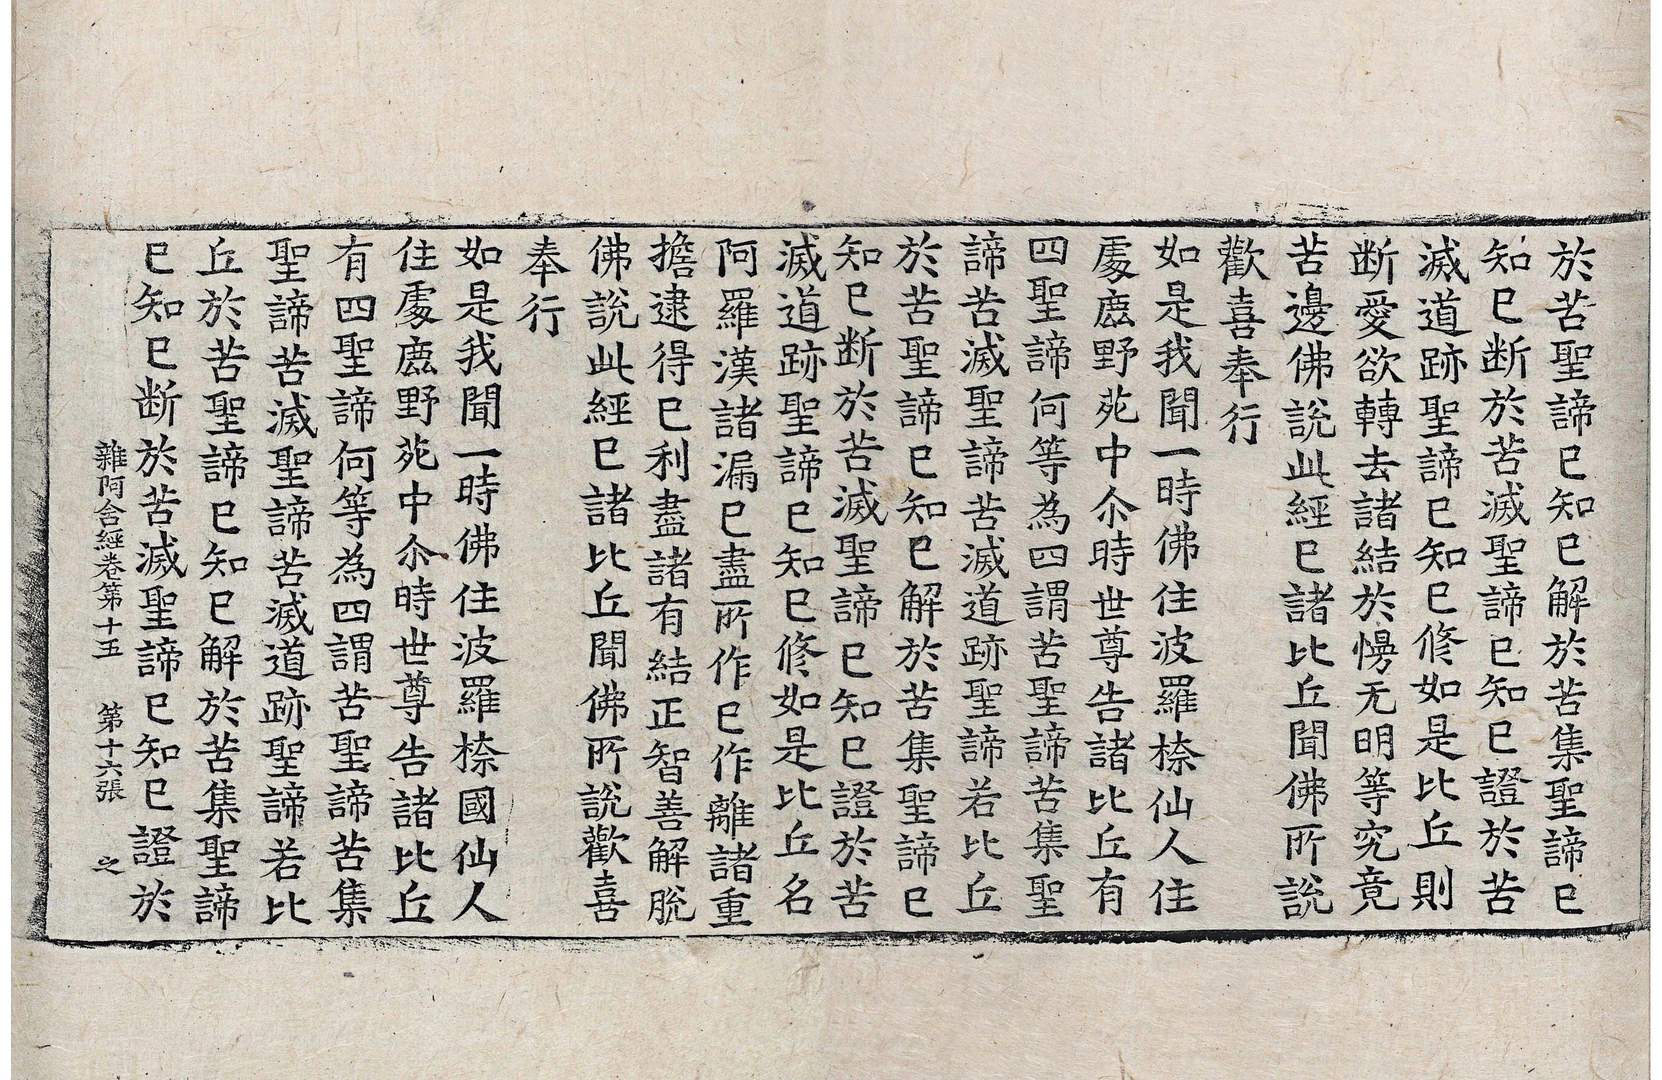 於苦聖諦已知已解於苦集聖諦已
知已断於苦滅聖諦已知已證於苦
滅道跡聖諦已知已修如是比丘則
断愛欲轉去諸結於慢无明等究竟
苦邊佛說此經已諸比丘聞佛所說
歡喜奉行
如是我聞一時佛住波羅㮈仙人住
處鹿野苑中尒時世尊告諸比丘有
四聖諦何等為四謂苦聖諦苦集聖
諦苦滅聖諦苦滅道跡聖諦若比丘
於苦聖諦已知已解於苦集聖諦已
知已断於苦滅聖諦已知已證於苦
滅道跡聖諦已知已修如是比丘名
阿羅漢諸漏已盡所作已作離諸重
擔逮得已利盡諸有結正智善解脫
佛說此經已諸比丘聞佛所說歡喜
奉行
如是我聞一時佛住波羅㮈國仙人
住處鹿野苑中尒時世尊告諸比丘
有四聖諦何等為四謂苦聖諦苦集
聖諦苦滅聖諦苦滅道跡聖諦若比
丘於苦聖諦已知已解於苦集聖諦
已知已断於苦滅聖諦已知已證於
雜阿含經卷第十五 第十六張 之